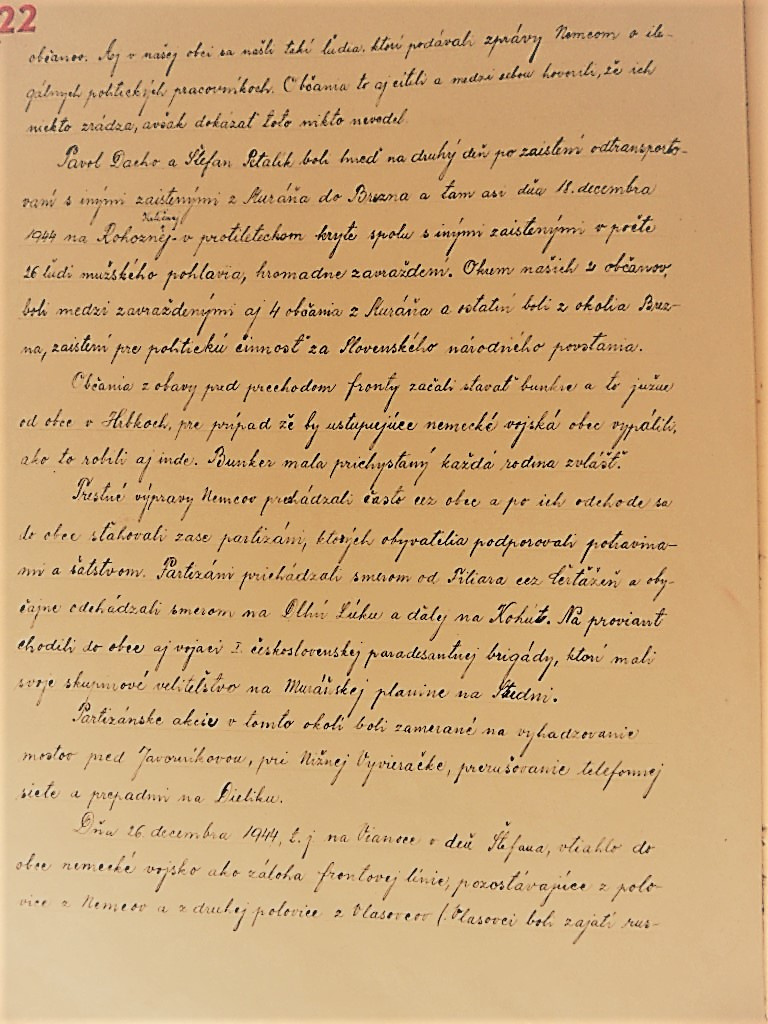 22
občanov. Aj v našej obci sa našli takí ľudia, ktorí podávali zprávy Nemcom o ile-
gálnych politických pracovníkoch. Občania to aj cítili a medzi sebou hovorili, že ich
niekto zrádza, avšak dokázať toto nikto nevedel.
Pavol Dacho a Štefan Ptalik boli hneď na druhý deň po zaistení odtransporto-
vaní s inými zaistenými z Muráňa do Brezna a tam asi dňa 18. decembra
1944 na Rohoznej- v protileteckom kryte spolu s inými zaistenými v počte
26 ľudí mužského pohlavia, hromadne zavraždení. Okrem našich 2 občanov,
boli medzi zavraždenými aj 4 občania z Muráňa a ostatní boli z okolia Brez-
na, zaistení pre politickú činnosť za Slovenského národného povstania.
Občania z obavy pred prechodom fronty začali stavať bunkre a to južne
od obce v Hrbkoch, pre prípad že by ustupujúce nemecké vojská obec vypálili,
ako to robili aj inde. Bunker mala prichystaný každá rodina zvlášť.
Trestné výpravy Nemcov prchádzali často cez obec a po ich odchode sa
do obce sťahovali zase partizáni, ktorých obyvatelia podporovali potravina-
mi a šatstvom. Partizáni prichádzali smerom od Filiara cez Čertážeň a oby-
čajne odchádzali smerom na Dlhú Lúku a ďalej na Kohút. Na proviant
chodili do obce aj vojaci I. československej paradesantnej brigády, ktorí mali
svoje skupinové veliteľstvo na Muráňskej planine na Studni.
Partizánske akcie v tomto okolí boli zamerané na vyhadzovanie
mostov pred Javorníkovou, pri Nižnej Vyvieračke, prerušovanie telefonnej
siete a prepadmi na Dieliku.
Dňa 26. decembra 1944, t. j na Vianoce o deň Štefana, vtiahlo do
obce nemecké vojsko ako záloha frontovej línie, pozostávajúce z polo-
vice z Nemcov a z druhej polovice z Vlasovcov (. Vlasovci boli zajatí rus-